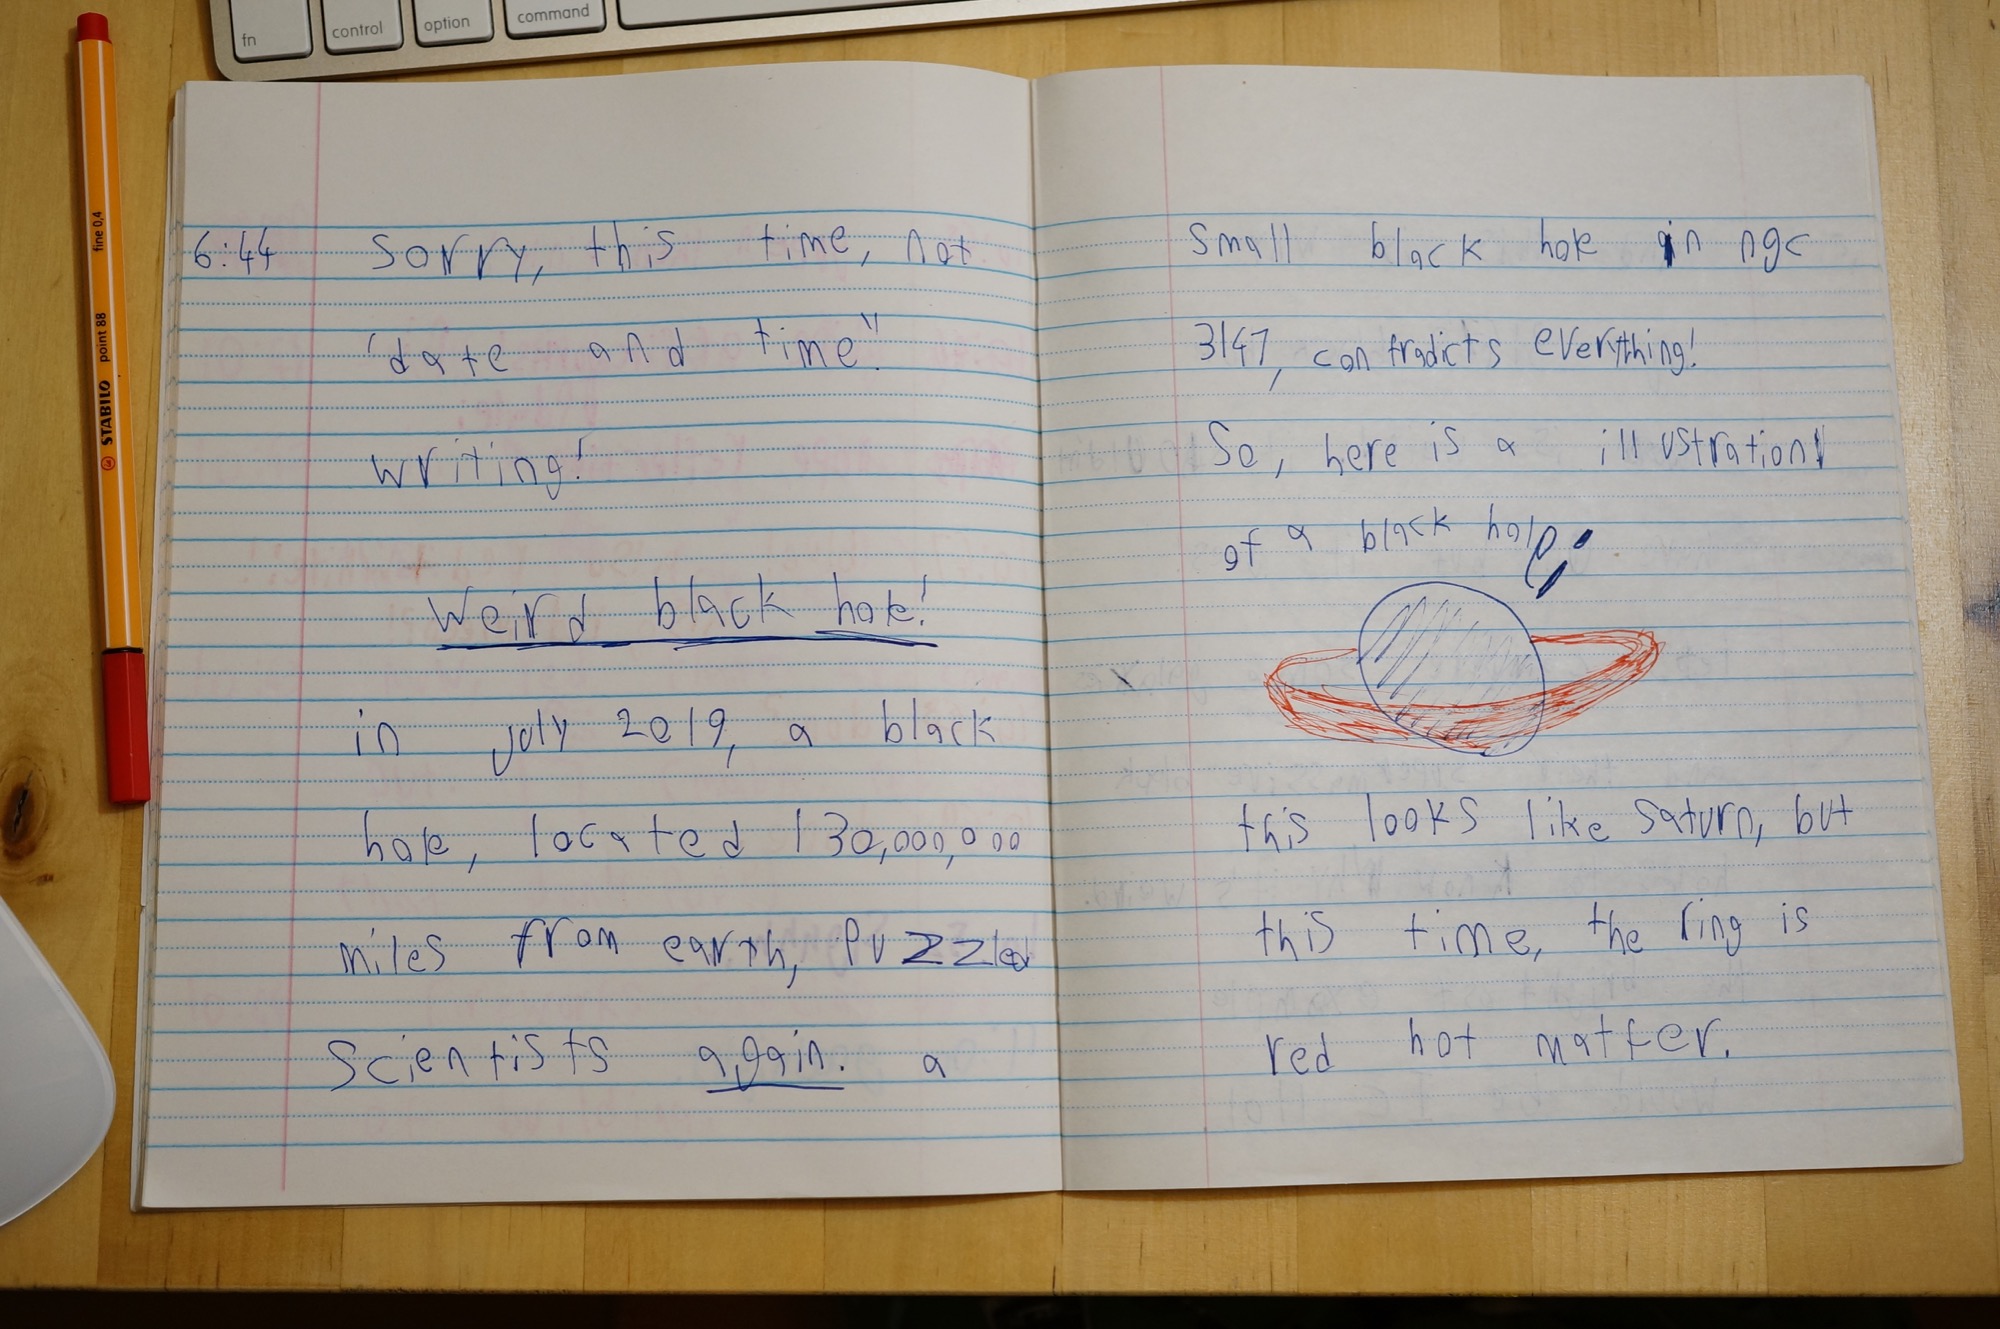 fn
control
option
command
STABILO point 88 fine 0,4
6:44 Sorry, this time, not
"date and time"
writing!
Weird black hole!
in july 2019, a black
hole, located 130,000,000
miles from earth, Puzzled
Scientists again. a
small black hole in ngc
3147, contradicts everything!
So, here is a illustration
of a black hole;
this looks like saturn, but
this time, the ring is
red hot matter.